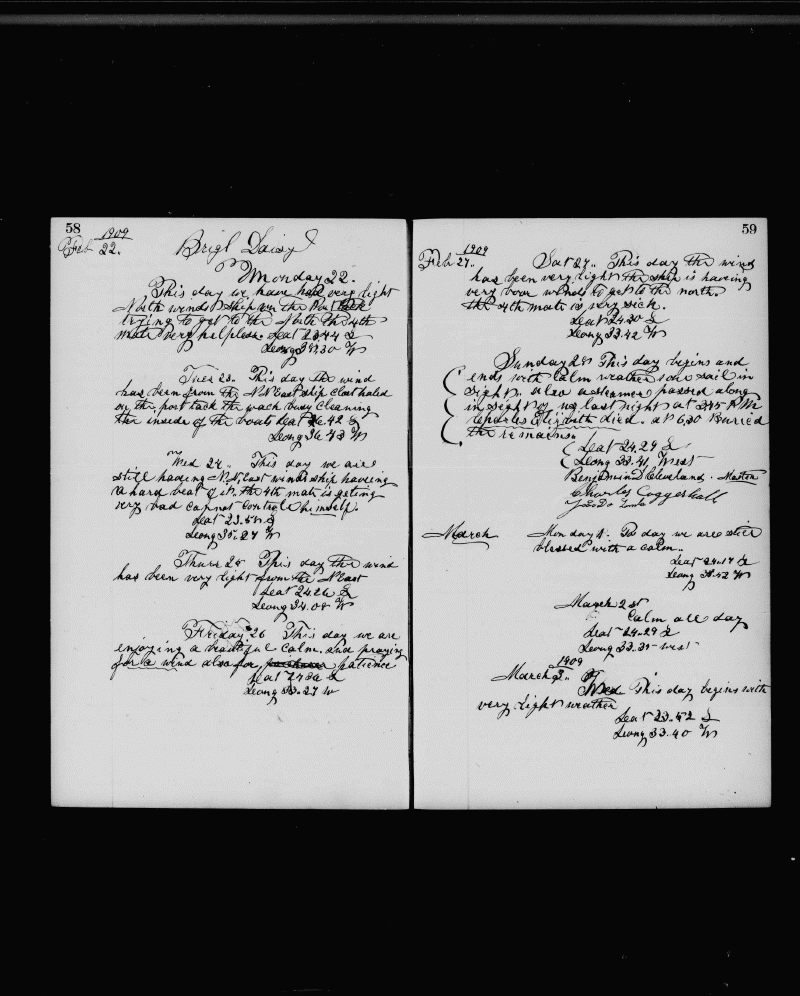 58
1909
Feb 22.
Brigt Daisy
Monday 22.
This day we have had very light
North winds ship on the Port tack
trying to get to the North the 4th
mate very helpless. Leat 23,44 S
Leong 37,30 W
Tues 23. This day the wind
has been from the N.N.East ship clost haled
on the port tack the wach busy cleaning
the inside of the boats Leat 26.42 S
Leong 36.43 W
Wed 24. This day we are
still having N.N.East winds ship having
a hard beat of it. the 4th mate is geting
very bad can not controle himself.
Leat 23.50 S
Leong 35.27 W
Thurs 25 This day the wind
has been very light from the N East
Leat 24.26 S
Leong 34.08 W
Friday 26 This day we are
enjoying a beatiful calm. and praying
for a wind also for patience
Leat 24.30 S
Leong 33.27 W
59
1909
Feb 27.
Sat 27. This day the wind
has been very light the ship is having
very poor winds to get to the north.
the 4th mate is very sick.
Leat 24.30 S
Leong 33.42 W
Sunday 28 This day begins and
ends with calm weather one sail in
sight. also a steamer passed along
in sight of us last night at 3,45 P.M.
died. at 6,30 Burried
the remains.
Leat 24.29 S
Leong 33.41 West
Benjamin D Cleveland. Master
Charles Coggeshall
March
Monday 1. To day we are still
blessed with a calm.
Leat 24.17 S
Leong 33.42 W
March 2nd
Calm all day
Leat 24.29 S
Leong 33.35 West
1909
March 3.. Wed This day begins with
very light weather
Leat 23.52 S
Leong 33.40 W